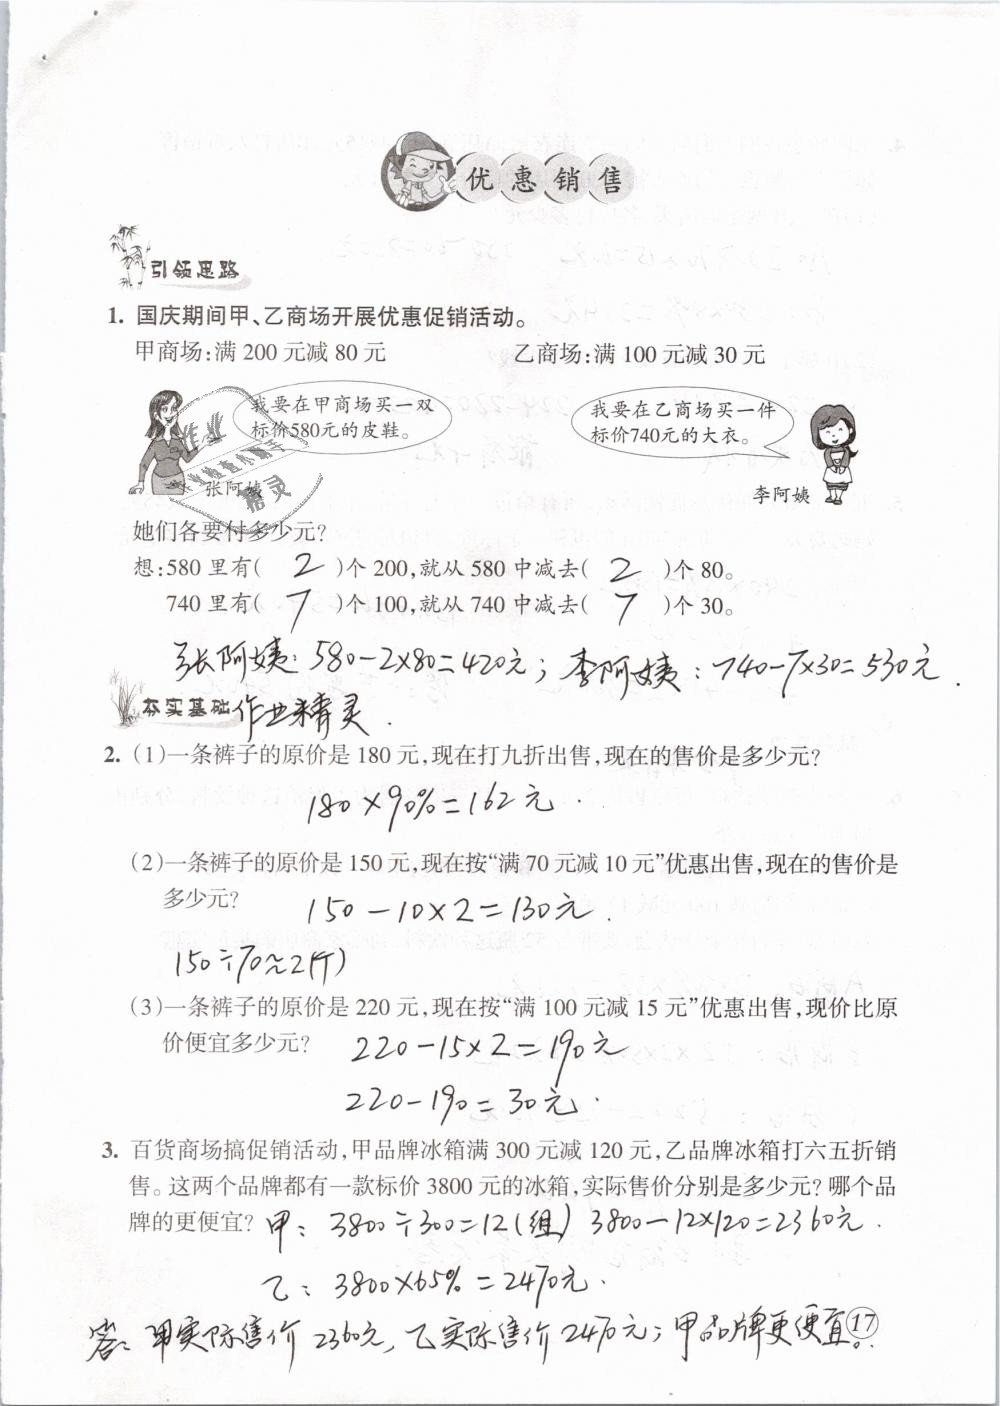 优惠销售
引领思路
1. 国庆期间甲、乙商场开展优惠促销活动。
甲商场:满 200 元减 80 元 乙商场:满 100 元减 30 元
我要在甲商场买一双
标价580元的皮鞋。
我要在乙商场买一件
标价740元的大衣。
作业
作业检查小帮手
精灵
张阿姨
李阿姨
她们各要付多少元?
想:580 里有( 2 )个 200,就从 580 中减去( 2 )个 80。
740 里有( 7 )个 100,就从 740 中减去( 7 )个 30。
张阿姨:580-2×80=420元;李阿姨:740-7×30=530元.
夯实基础
作业精灵.
2. (1)一条裤子的原价是 180 元,现在打九折出售,现在的售价是多少元?
180×90%=162元.
(2)一条裤子的原价是 150 元,现在按“满 70 元减 10 元”优惠出售,现在的售价是
多少元? 150-10×2=130元.
150÷70≈2(个)
(3)一条裤子的原价是 220 元,现在按“满 100 元减 15 元”优惠出售,现价比原
价便宜多少元? 220-15×2=190元
220-190=30元.
3. 百货商场搞促销活动,甲品牌冰箱满 300 元减 120 元,乙品牌冰箱打六五折销
售。这两个品牌都有一款标价 3800 元的冰箱,实际售价分别是多少元?哪个品
牌的更便宜? 甲:3800÷300=12(组) 3800-12×120=2360元.
乙:3800×65%=2470元.
答:甲实际售价2360元,乙实际售价2470元;甲品牌更便宜。
17